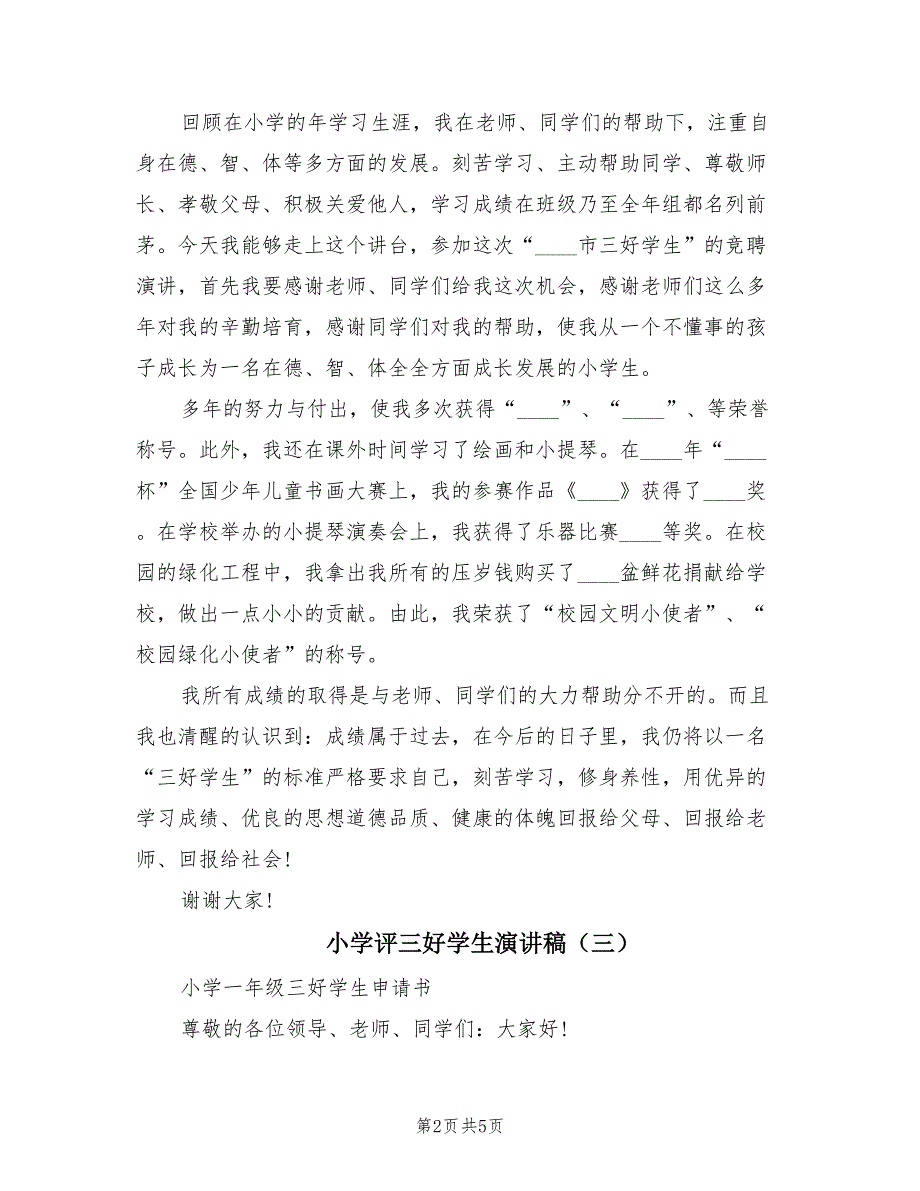 回顾在小学的年学习生涯，我在老师、同学们的帮助下，注重自
身在德、智、体等多方面的发展。刻苦学习、主动帮助同学、尊敬师
长、孝敬父母、积极关爱他人，学习成绩在班级乃至全年组都名列前
茅。今天我能够走上这个讲台，参加这次“____市三好学生”的竞聘
演讲，首先我要感谢老师、同学们给我这次机会，感谢老师们这么多
年对我的辛勤培育，感谢同学们对我的帮助，使我从一个不懂事的孩
子成长为一名在德、智、体全全方面成长发展的小学生。
多年的努力与付出，使我多次获得“____”、“____”、等荣誉
称号。此外，我还在课外时间学习了绘画和小提琴。在____年“____
杯”全国少年儿童书画大赛上，我的参赛作品《____》获得了____奖
。在学校举办的小提琴演奏会上，我获得了乐器比赛____等奖。在校
园的绿化工程中，我拿出我所有的压岁钱购买了____盆鲜花捐献给学
校，做出一点小小的贡献。由此，我荣获了“校园文明小使者”、“
校园绿化小使者”的称号。
我所有成绩的取得是与老师、同学们的大力帮助分不开的。而且
我也清醒的认识到：成绩属于过去，在今后的日子里，我仍将以一名
“三好学生”的标准严格要求自己，刻苦学习，修身养性，用优异的
学习成绩、优良的思想道德品质、健康的体魄回报给父母、回报给老
师、回报给社会！
谢谢大家！
小学评三好学生演讲稿（三）
小学一年级三好学生申请书
尊敬的各位领导、老师、同学们：大家好！
第2页共5页